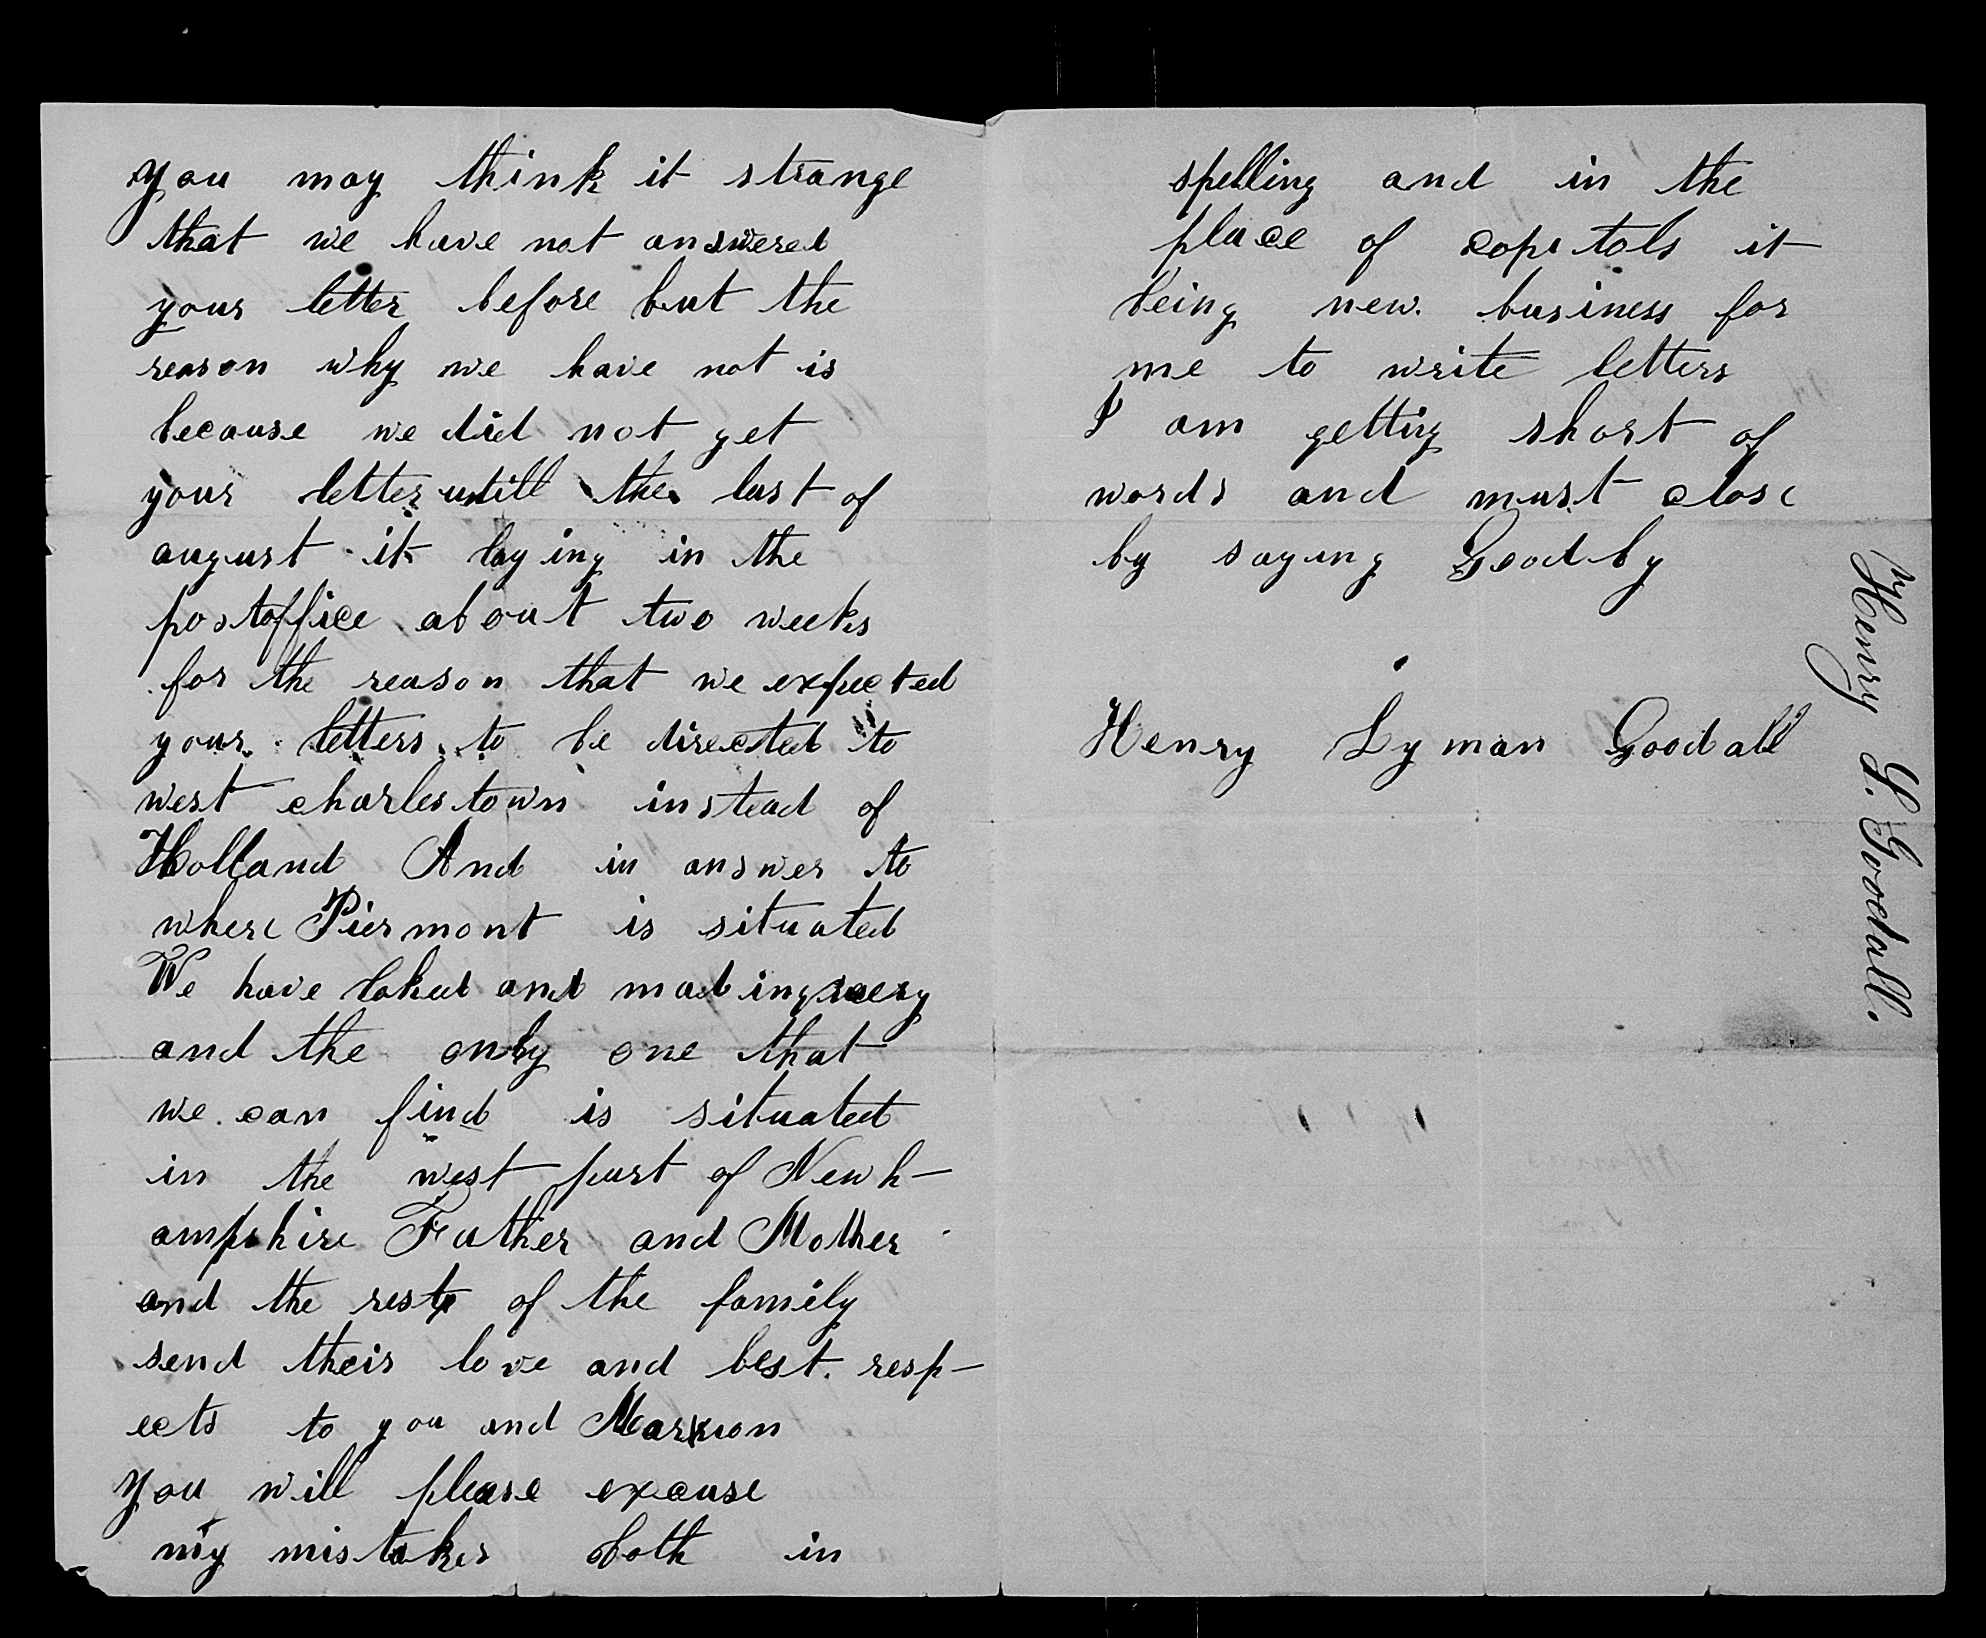 you may think it strange
that we have not answered
your letter before but the
reason why we have not is
because we did not get
your letter untill the last of
august it laying in the
postoffice about two weeks
for the reason that we expected
your letters to be directed to
west charlestown instead of
Holland And in answer to
where Piermont is situated
We have loked and mad
and the only one that
we can find is situated
in the west part of New h-
ampshire Father and Mother
and the rest of the family
send their love and best resp-
ects to you and
you will please excuse
my mistakes both in
spelling and in the
place of capitals it
being new business for
me to write letters
I am getting short of
words and must close
by saying Good by
Henry Lyman Goodall
Henry L. Goodall.